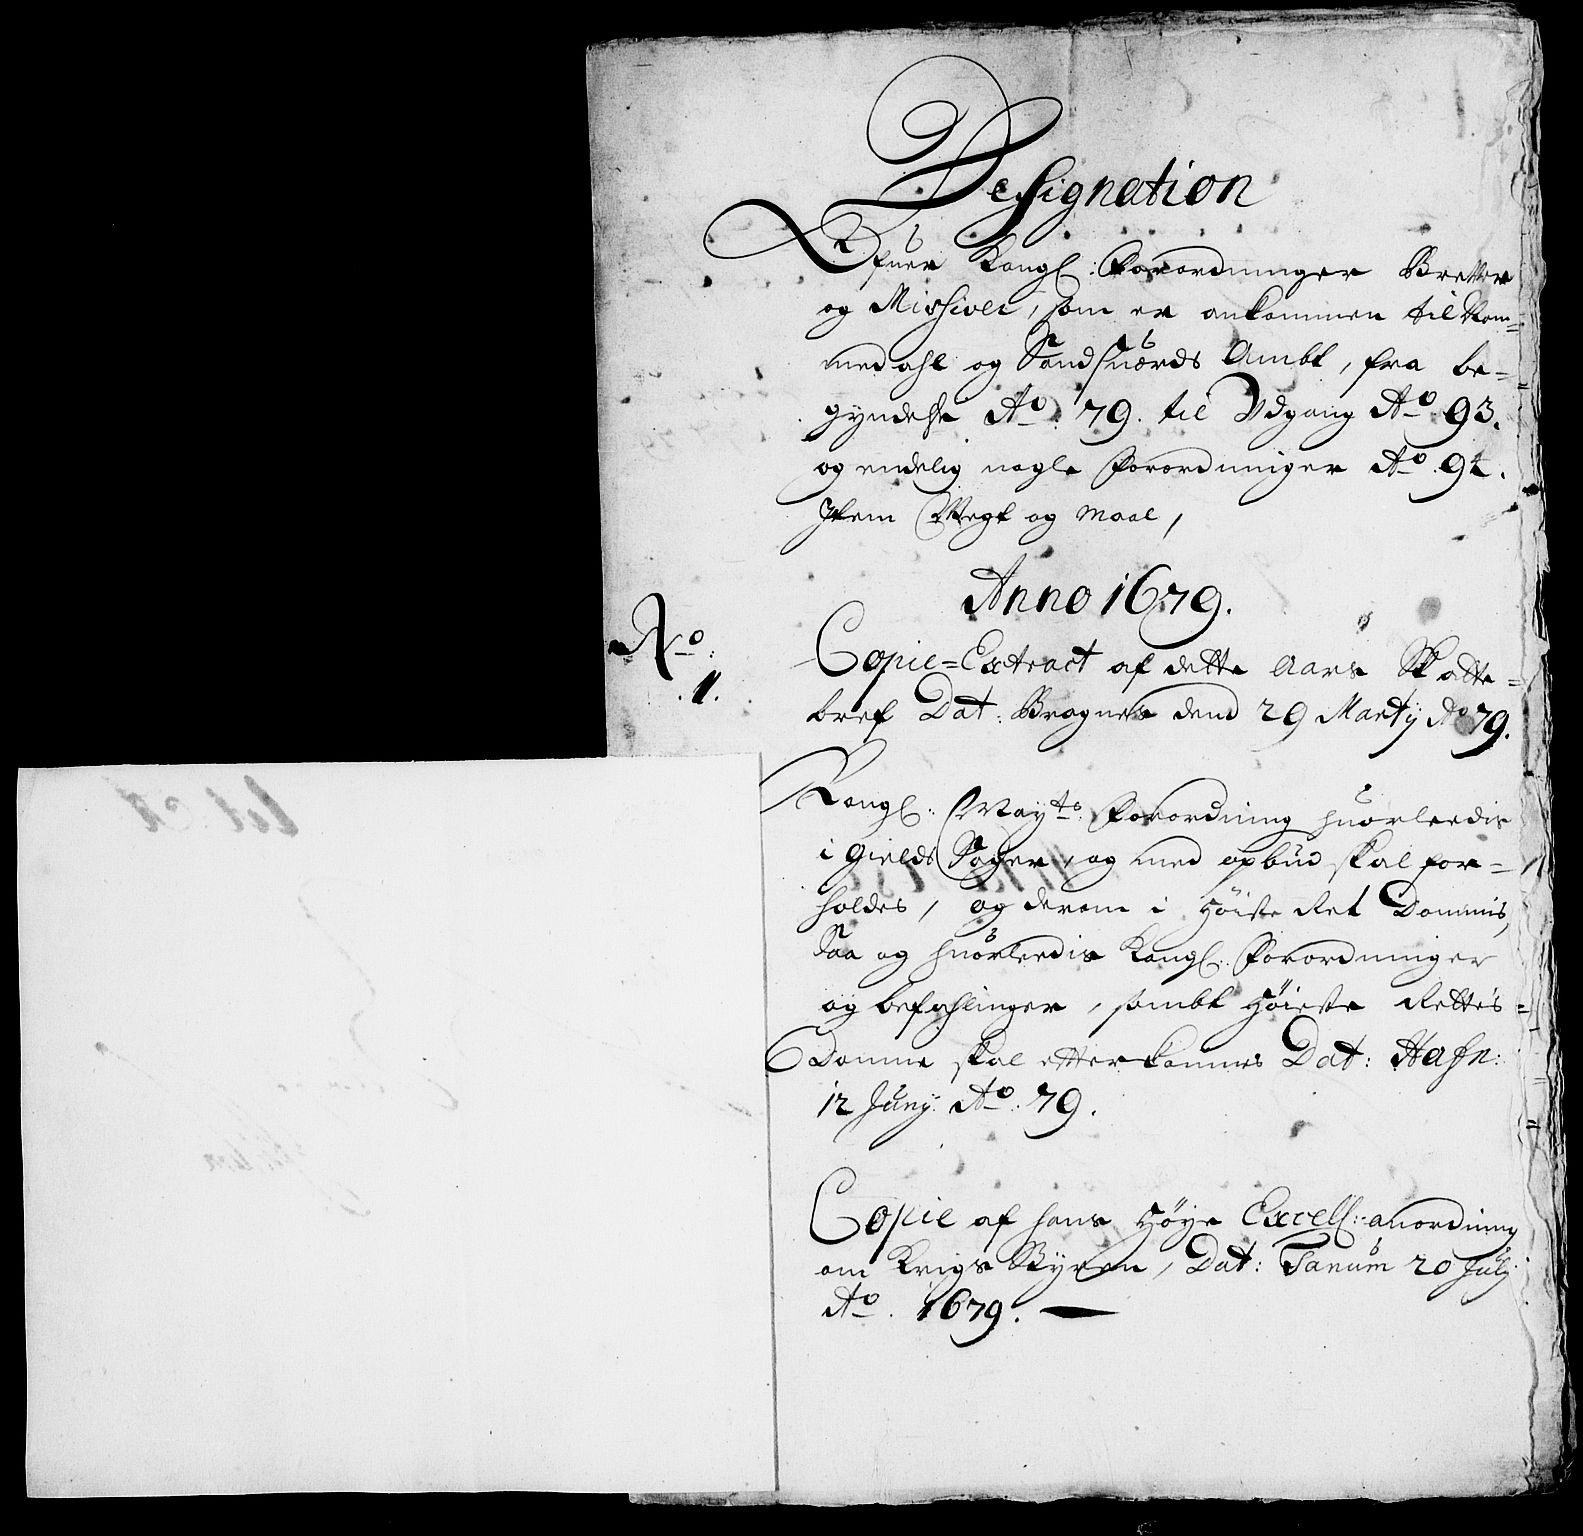 Designation
Ofuer Kongl: Forordninger Breffver
og Missiver, som er ankommen til Num=
medahl og Sandsuerds Ambt, fra be=
gyndelse Ao 79. til Udgang Ao 93.
og endelig nogle Forordninger Ao 94.
Item Wegt og Maal,
Anno 1679.
No:
.1.
Copie=Extract af dette Aars Skatte=
bref Dat: Bragnes dend 29 Martij Ao 79.
Kongl: Mayts. Forordning huorledis
i Gields Sager, og med opbud skal for=
holdes, og derom i Høiste Ret Dommis,
Saa og huorledis Kongl: Forordninger
og befahlinger, sambt Høieste Rettes=
Domme skal etterkommes Dat: Hafn:
12 Junij Ao. 79.
Copie af hans Høye Excell: anordning
om Krigs Styren, Dat: Tanum 20 Julj
Ao. 1679.